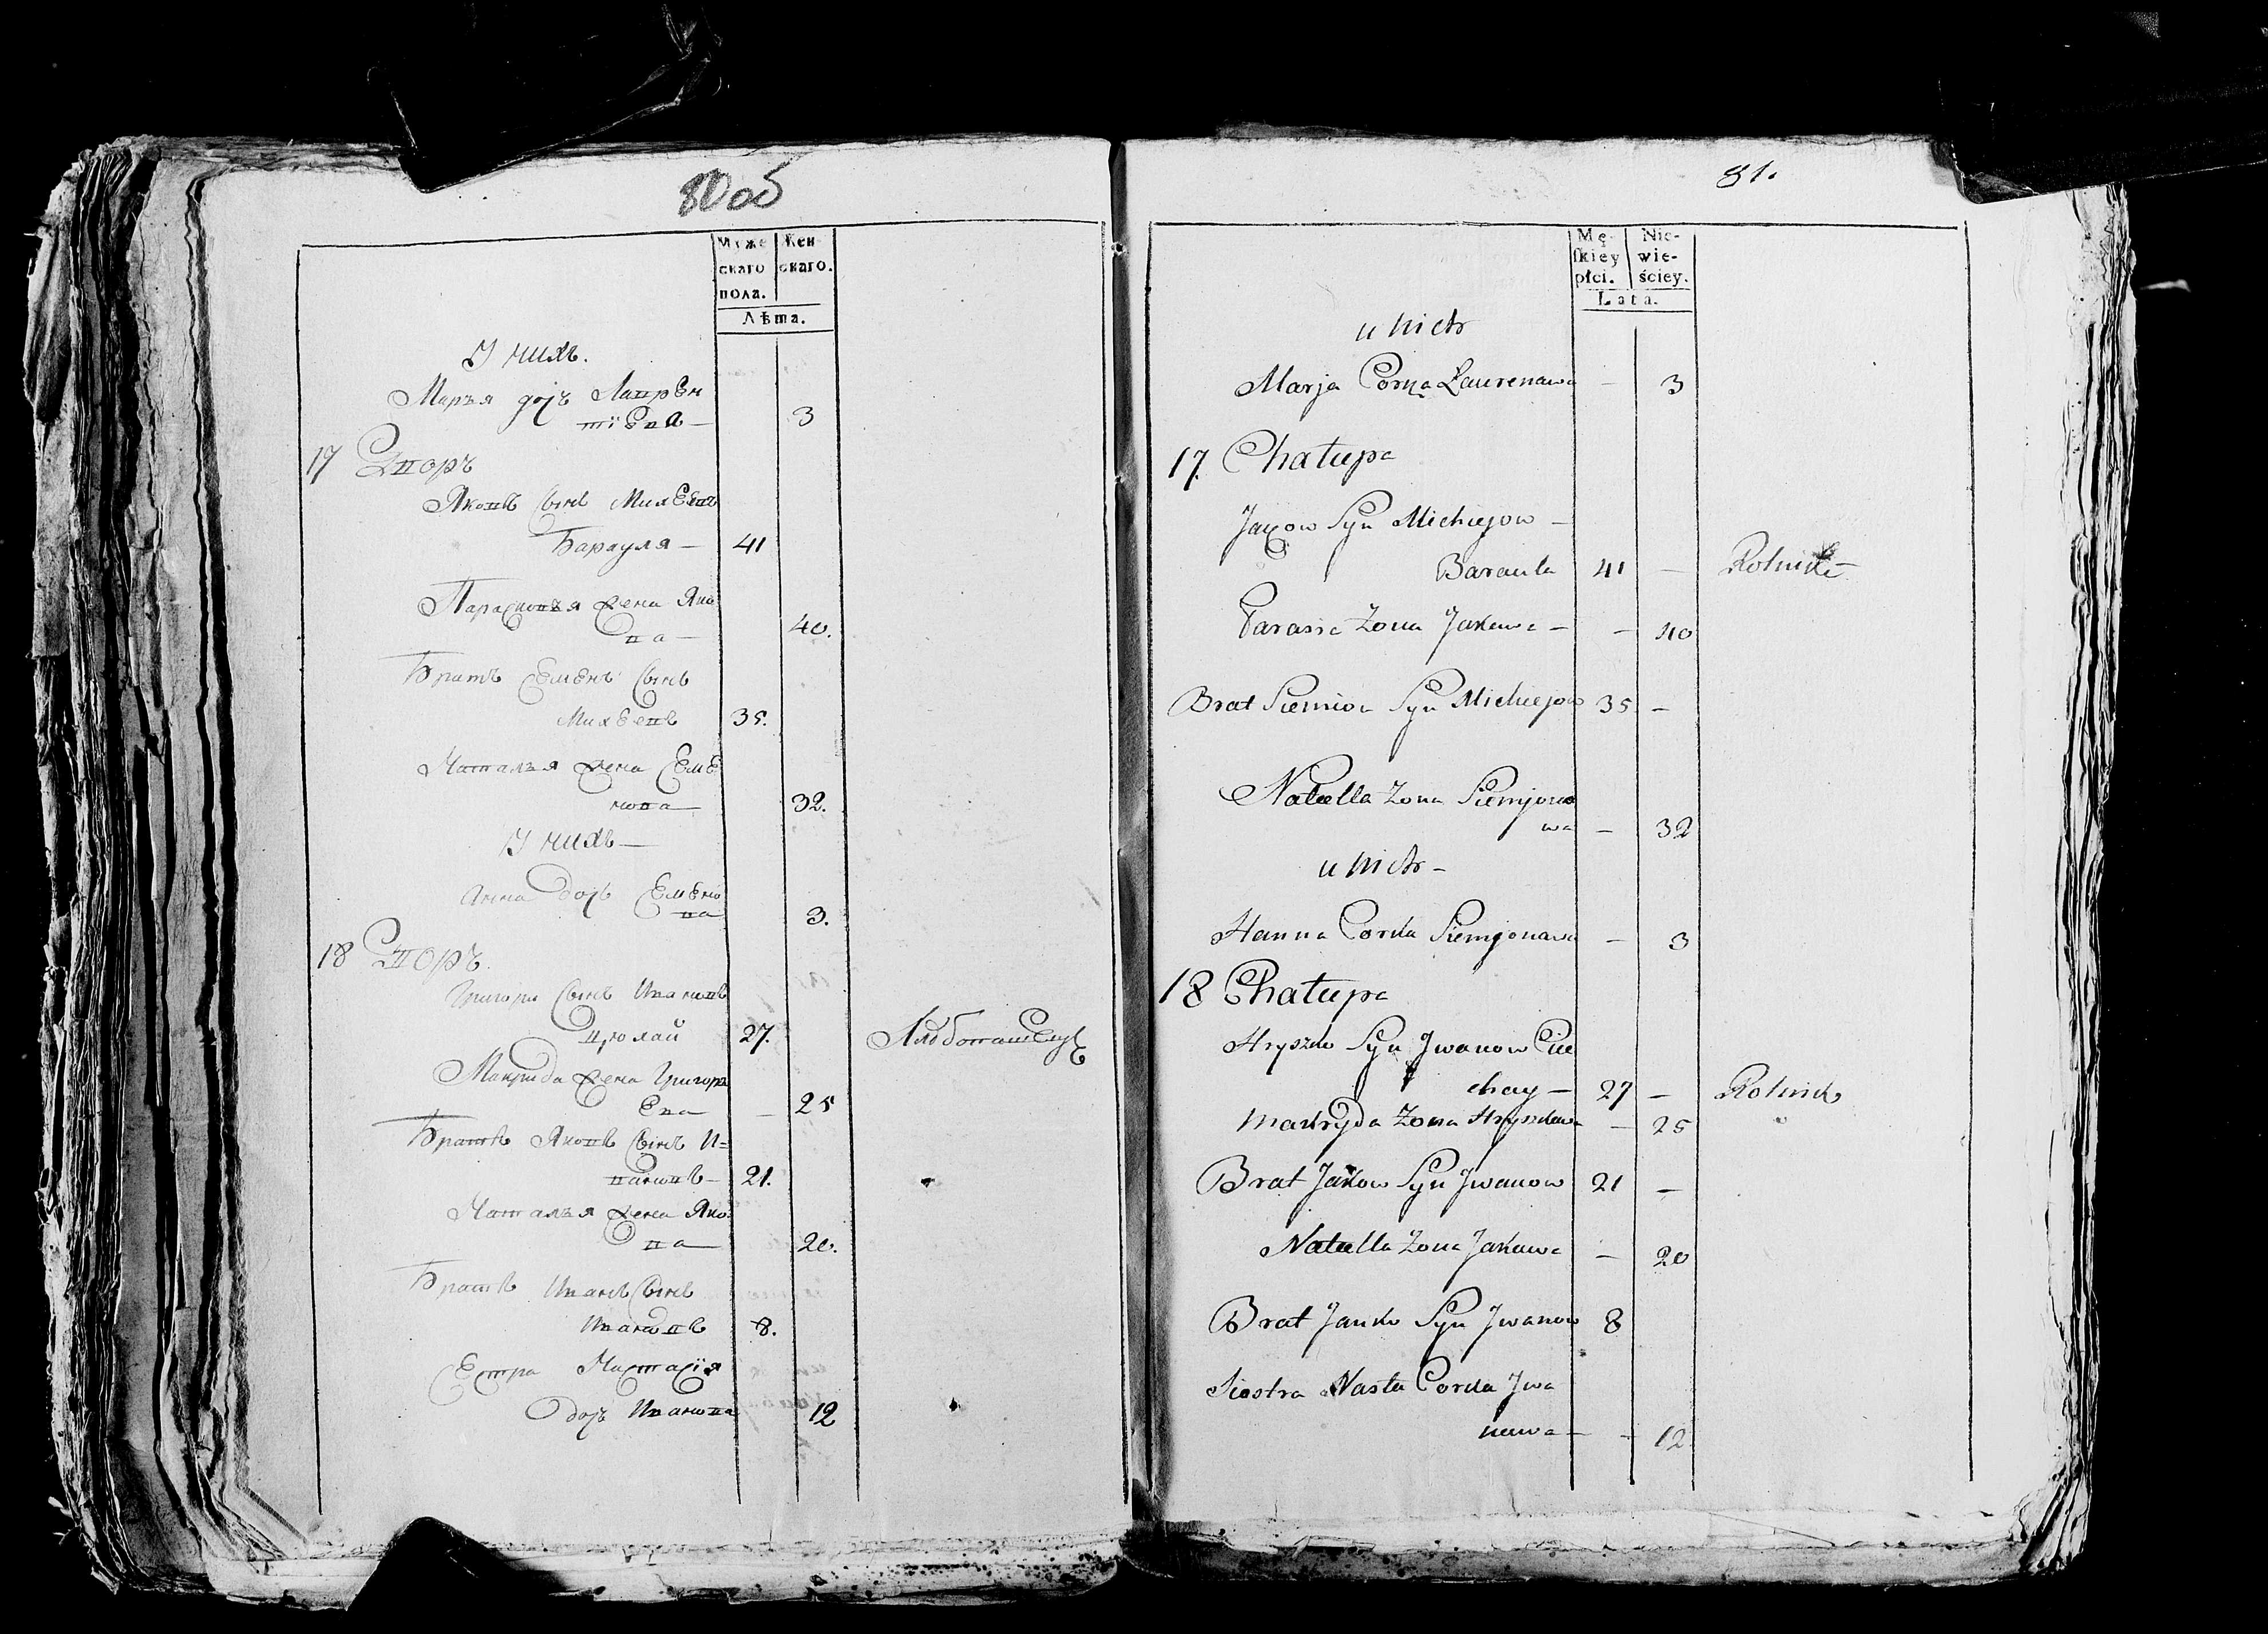 80 об
Муже
скаго
пола.
Жен
скаго.
Лѣта.
У нихъ.
Марья дочъ Лаврен
тіева —
3
17 Дворъ
Яковъ Сынъ Михеевъ
Барауля —
41
Парасковья жена Яко
ва —
40.
Братъ Семенъ Сынъ
Михеевъ
35.
Наталья жена Семе
нова
32.
У нихъ —
Анна дочъ Семено
ва
3.
18 Дворъ.
Григори Сынъ Ивановъ
27.
Макрида жена Григорь
ева
— 25
Братъ Яковъ Сынъ И=
вановъ —
21.
Наталья жена Яко
ва —
20.
Братъ Иванъ Сынъ
Ивановъ
8.
Сестра Настасія
дочъ Иванова
12
81.
Mę-
skiey
płci.
Nie-
wie-
ściey.
Lata.
u nich
Marja Corka Laurenawa — 3
17. Chałupa
Jakow Syn Michiejow —
Baraula 41 — Rolnik
Parasia Zona Jakawa — — 40
Brat Siemion Syn Michiejow 35 —
Natella Zona Siemjono
wa — 32
u nich —
Hanna Corka Siemjonawa — 3
18 Chałupa
Hryszko Syn Jwanow Cie
chay — 27 — Rolnik
Makryda Zona Hryszkawa — 25
Brat Jakow Syn Jwanow 21 —
Natella Zona Jakawa — 20
Brat Janko Syn Jwanow 8
Siostra Nasta Corka Jwa
nawa — — 12